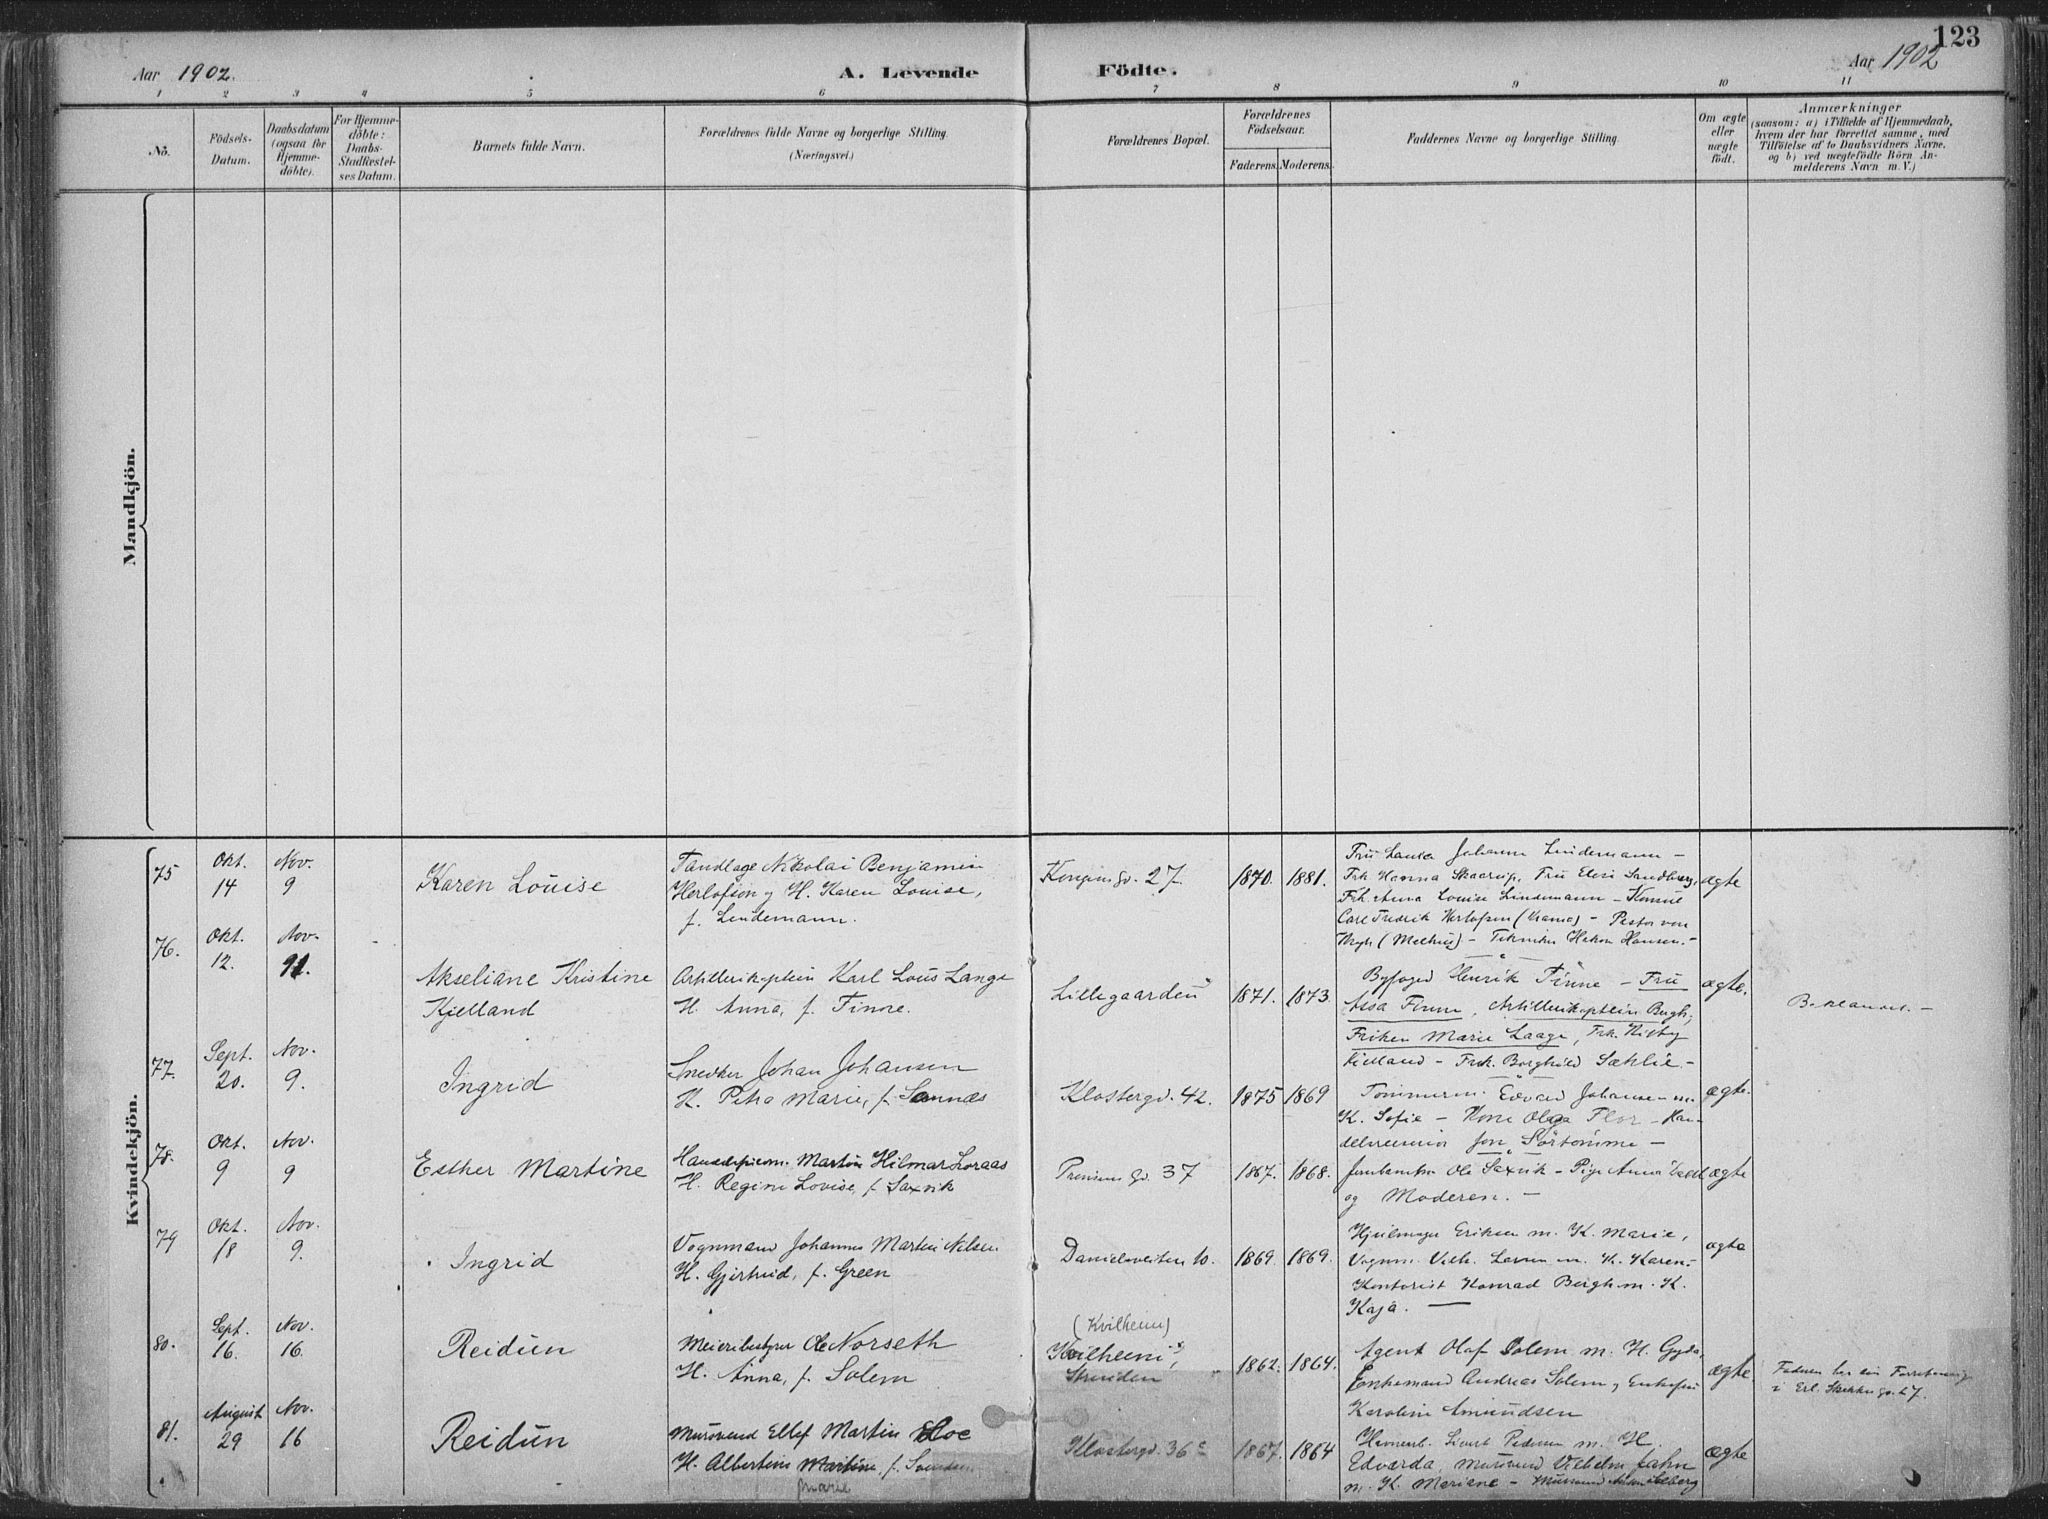 123
Aar 1902.
A. Levende
Födte.
Aar 1902
1 2 3 4 5 6 7 8 9 10 11
No.
Födsels-
Datum.
Daabsdatum
(ogsaa for
Hjemme-
döbte).
For Hjemme-
döbte:
Daabs-
Stadfæstel-
ses Datum.
Barnets fulde Navn.
Forældrenes fulde Navne og borgerlige Stilling.
(Næringsvei.)
Forældrenes Bopæl.
Forældrenes
Födselsaar.
Faderens. Moderens.
Faddernes Navne og borgerlige Stilling.
Om ægte
eller
uægte
födt.
Anmærkninger
(saasom: a) i Tilfælde af Hjemmedaab,
hvem der har forrettet samme, med
Tilföielse af to Daabsvidners Navne,
og b) ved uægtefödte Börn An-
melderens Navn m. V.)
Mandkjön.
Kvindekjön.
75
Okt.
14
Nov.
9
Karen Louise
Tandlæge Nikolai Benjamin
Herlofson og H. Karen Louise,
f. Lindemann.
Kongensgd. 27.
1870. 1881.
Fru Laura Johanne Lindemann –
Frk Hanna Skaarup, Fru Elise Sandberg,
Frk. Anna Louise Lindemann – Konsul
Carl Fredrik Herlofsen – Pastor von
Krogh (Melhus) – Tekniker Hakon Hansen. –
ægte
76.
Okt.
12.
Nov.
Akseliane Kristine
Kjelland
Artillerikaptein Karl Louis Lange
H. Anna, f. Finne.
Lillegaarden
1871. 1873.
Byfoged Henrik Finne – Fru
Finne, Artillerikaptein Bergh,
Frøken Marie Laage, Frk.
Kielland – Frk. Borghild Sæhlie. –
ægte.
Baklandet. –
77.
Sept.
20.
Nov.
9.
Ingrid
Snedker Johan Johansen
H. Petra Marie, f. Sannæs
Klostergd. 42.
1875 1869
Tømmerm. Edvard Johansen m.
K. Sofie – Kone Olga Flor – Han-
Jon Sørtømme –
ægte.
78.
Okt.
9
Nov.
9
Esther Martine
Martin Hilmar Loraas
H. Regine Lovise, f. Saxvik
Prinsensgd. 37
1867. 1868.
Ole Saxvik – Pige Anna
og Moderen. –
ægte
79
Okt.
18
Nov.
9.
Ingrid
Vognmand Johannes Martin Nilsen
H. Gjertrud, f. Green
Danielsveiten 10.
1869. 1869.
Hjulmager Eriksen m. K. Marie,
Vognm. Vilh. Larsen m. K. Karen –
Kontorist Konrad Bergh m. K.
Kaja. –
ægte
80.
Sept.
16.
Nov.
16.
Reidun
Meieribestyrer Ole Norseth
H. Anna, f. Solem
(Kvilheim)
Kvilheim,
Strinden
1862. 1864.
Agent Olaf Solem m. H. Gyda,
Enkemand Andreas Solem, Enkefru
Karoline Amundsen
ægte
Faderen har sin Forretning
i Erl. Skakkes gd. 27.
81.
August
29
Nov.
16
Reidun
Mursvend Ellef Martin Roe
H. Albertine Martine, f. Svendsen
Marie
Klostergd. 36 c
1867. 1864
Sivert Pedersen m. H.
Edvarda, Mursvend Vilhelm Jahn
m. K. Mariane – Murs­vend
ægte